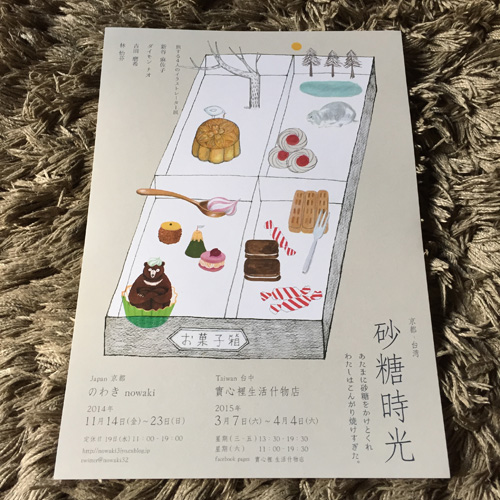 京都・台湾
砂糖時光
あたまに砂糖をかけとくれ
わたしはこんがり焼けすぎた。
お菓子箱
Japan 京都
のわき nowaki
2014年
11月14日(金)~23日(日)
定休日19日(水) 11:00-19:00
Taiwan 台中
實心裡生活什物店
2015年
3月7日(六)~4月4日(六)
星期(三-五) 13:30-19:30
星期(六) 11:00-19:30
facebook pages 實心裡生活什物店